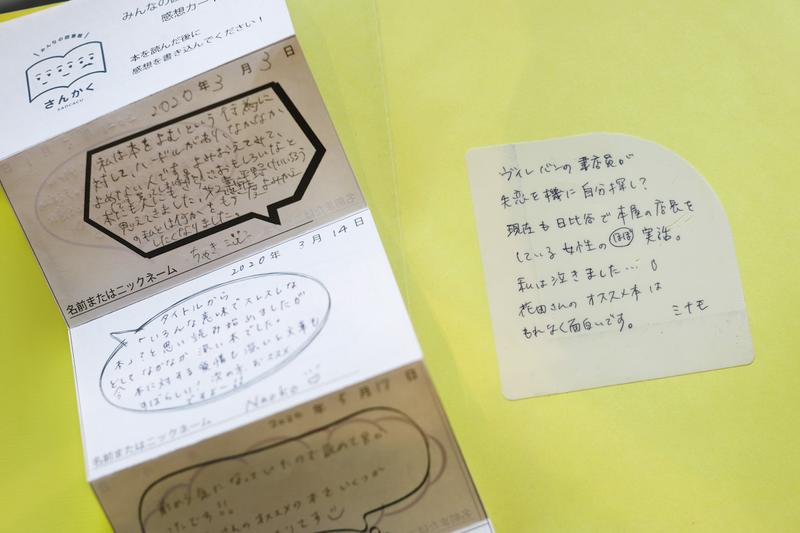 みんなの図書館
感想カード
本を読んだ後に
感想を書き込んでください！
みんなの図書館
さんかく
SANCACU
2020年3月3日
私は本をよむという行為に
対して、ハードルがあり、なかなか
よめないんですが
思えてきました。
の私とは何か をもう一度よみかえ
したくなりました。
ちゃき
名前またはニックネーム
2020年3月14日
タイトルから
「いろんな意味でスレスレな
本」かと思い読み始めましたが
とてもなかなか深い本でした。
本に対する愛情も深いし文章も
すばらしい! 次の本おススメ
ですよー!!
Naoko
名前またはニックネーム
2020年5月17日
前から気になっていたので読めて良か
ったです!!
さんのオススメの本をいくつか
りです
名前または
ヴィレバンの書店員が
失恋を機に自分探し?
現在も日比谷で本屋の店長を
している女性のほぼ実話。
私は泣きました…
花田さんのオススメ本は
もれなく面白いです。
ミナモ